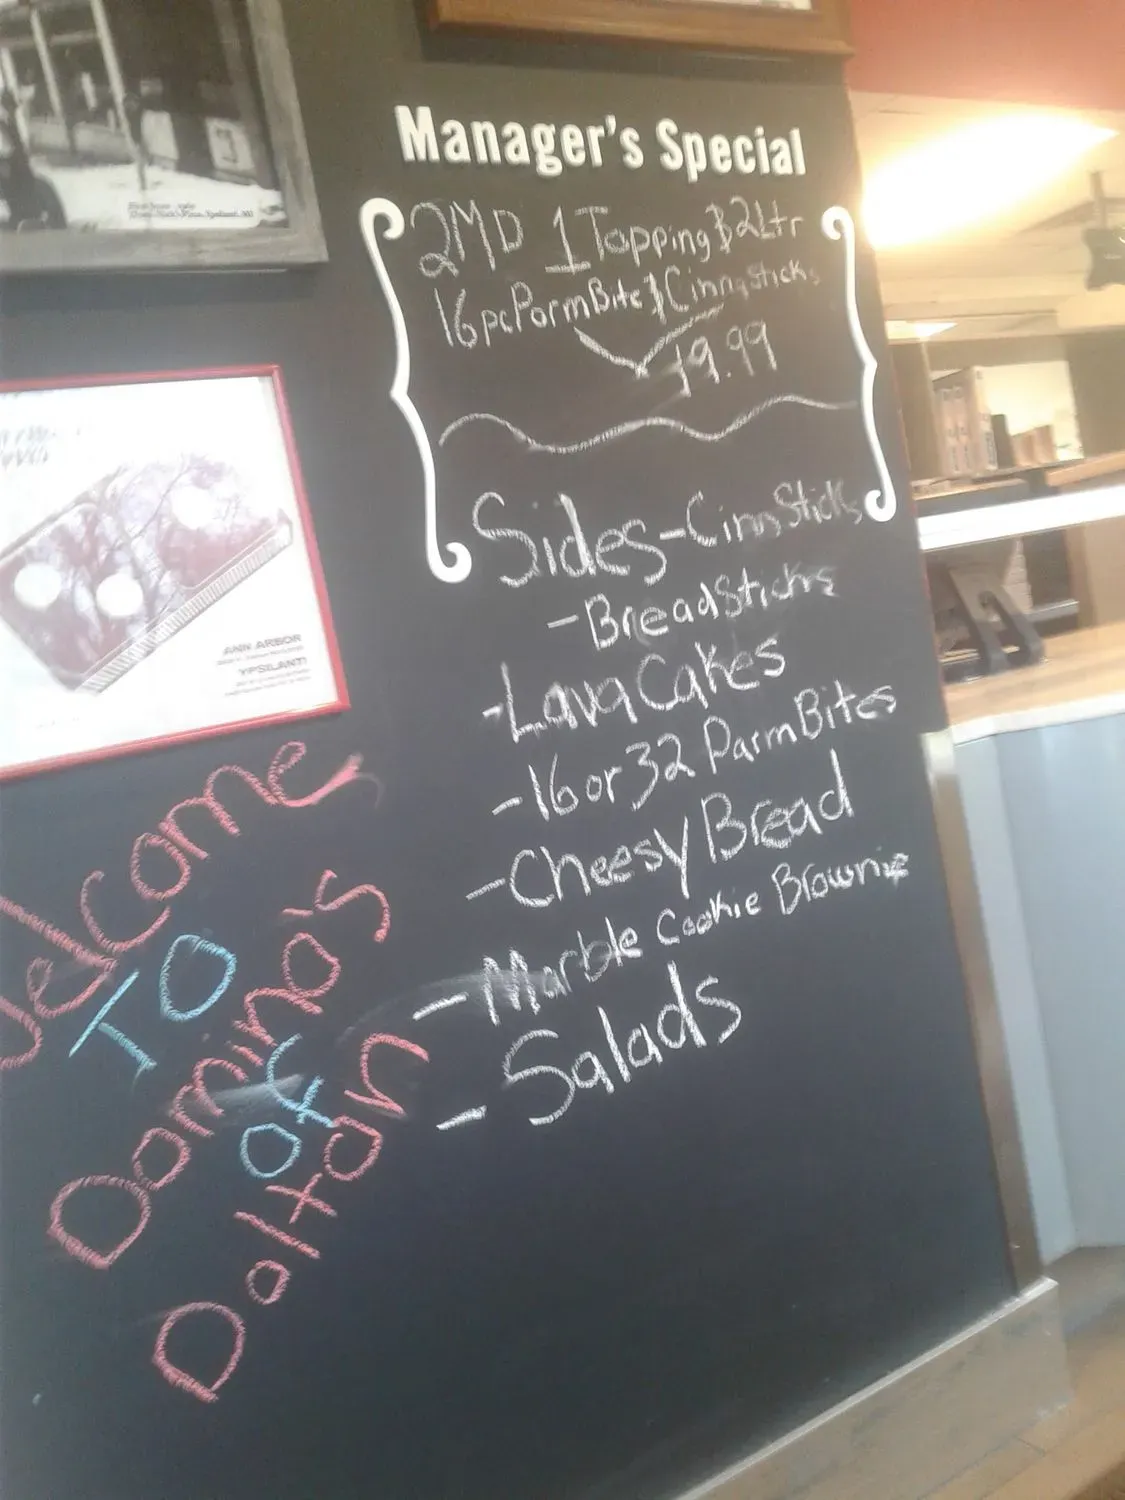 Manager's Special
2MD 1 Topping & 2Ltr
16pc Parm Bite & Cinnasticks
19.99
Sides - Cinn Sticks
- Breadsticks
- Lava Cakes
- 16 or 32 Parm Bites
- Cheesy Bread
- Marble Cookie Brownie
- Salads
Welcome
TO
Dominos
of
Dalton
ANN ARBOR
YPSILANTI